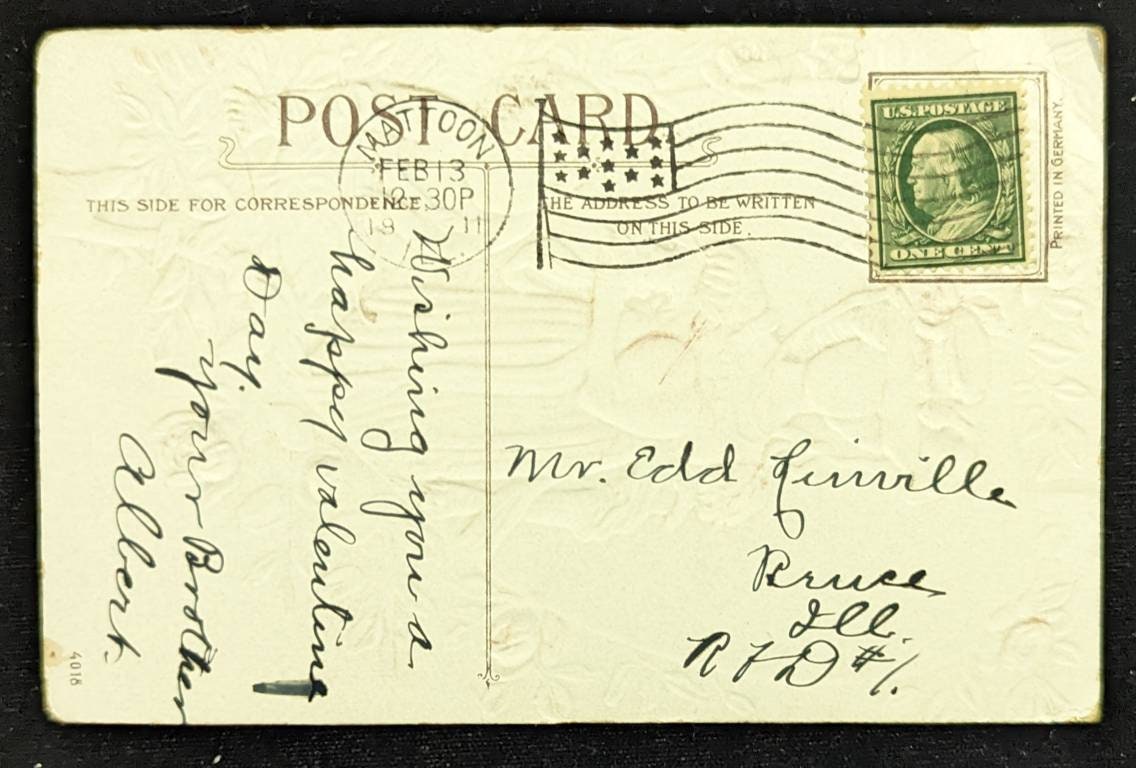 POST CARD
MATTOON
FEB 13
12.30P
1911
THIS SIDE FOR CORRESPONDENCE.
THE ADDRESS TO BE WRITTEN
ON THIS SIDE.
U.S. POSTAGE
ONE CENT
PRINTED IN GERMANY.
Wishing you a
happy valentine
Day.
your Brother
Albert.
Mr. Edd Linville
Bruce
Ill.
R F D #1.
4018